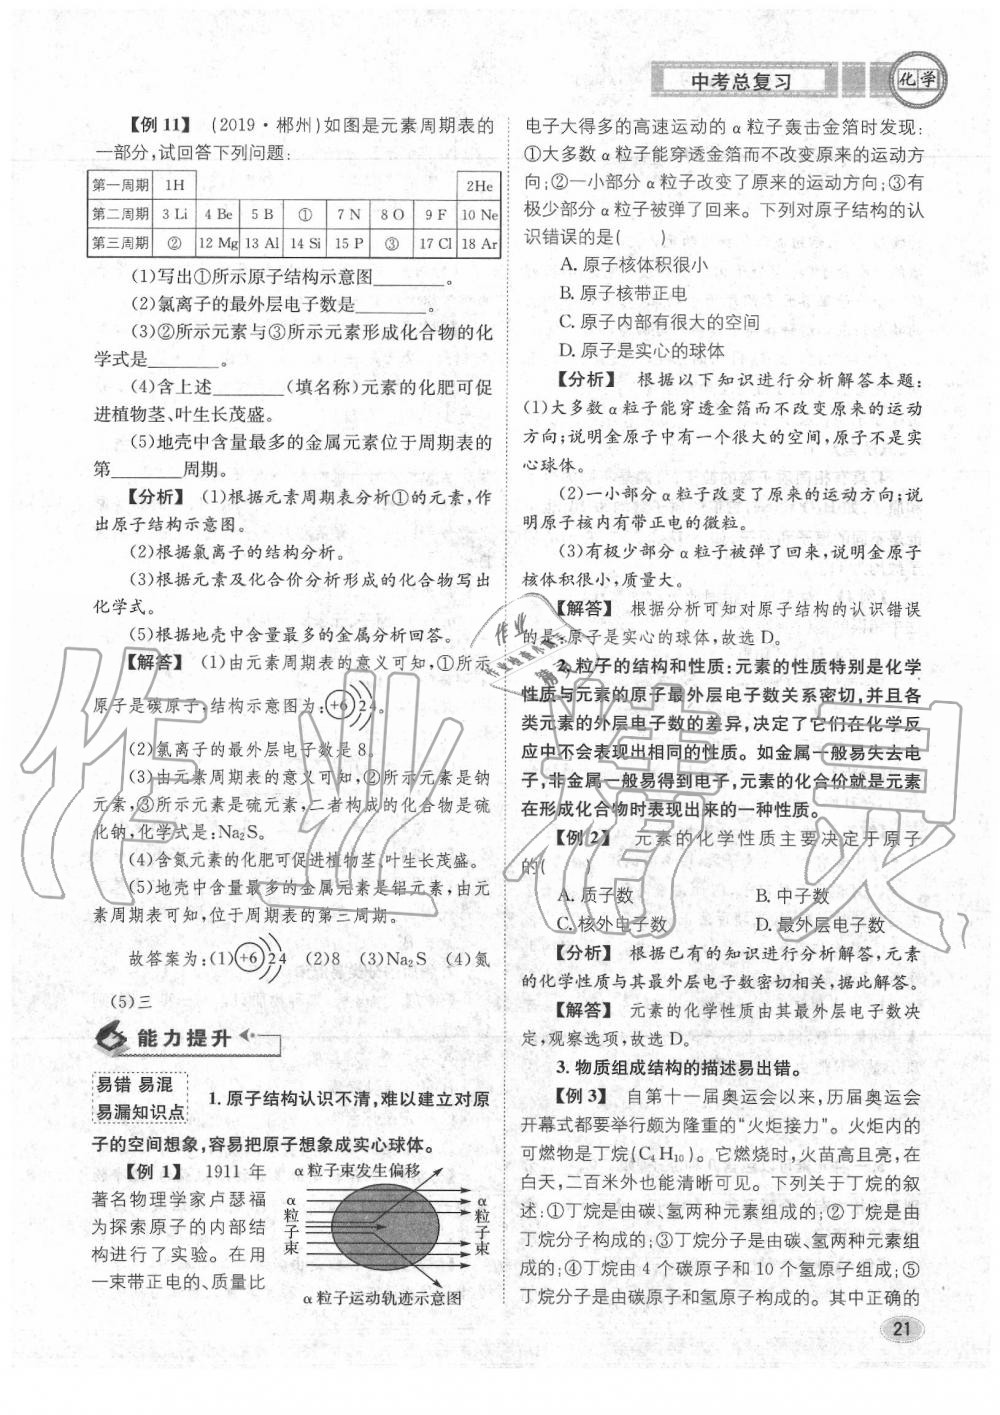 中考总复习 化学
【例 11】 (2019·郴州)如图是元素周期表的
一部分,试回答下列问题:
第一周期 1H 2He
第二周期 3 Li 4 Be 5 B ① 7 N 8 O 9 F 10 Ne
第三周期 ② 12 Mg 13 Al 14 Si 15 P ③ 17 Cl 18 Ar
(1)写出①所示原子结构示意图________。
(2)氯离子的最外层电子数是________。
(3)②所示元素与③所示元素形成化合物的化
学式是________。
(4)含上述________(填名称)元素的化肥可促
进植物茎、叶生长茂盛。
(5)地壳中含量最多的金属元素位于周期表的
第________周期。
【分析】 (1)根据元素周期表分析①的元素,作
出原子结构示意图。
(2)根据氯离子的结构分析。
(3)根据元素及化合价分析形成的化合物写出
化学式。
(5)根据地壳中含量最多的金属分析回答。
【解答】 (1)由元素周期表的意义可知,①所示
原子是碳原子,结构示意图为:+6 2 4。
(2)氯离子的最外层电子数是 8。
(3)由元素周期表的意义可知,②所示元素是钠
元素,③所示元素是硫元素,二者构成的化合物是硫
化钠,化学式是:Na₂S。
(4)含氮元素的化肥可促进植物茎、叶生长茂盛。
(5)地壳中含量最多的金属元素是铝元素,由元
素周期表可知,位于周期表的第三周期。
故答案为:(1)+6 2 4 (2)8 (3)Na₂S (4)氮
(5)三
能力提升
易错 易混
易漏知识点
1. 原子结构认识不清,难以建立对原
子的空间想象,容易把原子想象成实心球体。
【例 1】 1911 年
著名物理学家卢瑟福
为探索原子的内部结
构进行了实验。在用
一束带正电的、质量比
α粒子束发生偏移
α粒子束
α粒子束
α粒子运动轨迹示意图
电子大得多的高速运动的 α 粒子轰击金箔时发现:
①大多数 α 粒子能穿透金箔而不改变原来的运动方
向;②一小部分 α 粒子改变了原来的运动方向;③有
极少部分 α 粒子被弹了回来。下列对原子结构的认
识错误的是( )
A. 原子核体积很小
B. 原子核带正电
C. 原子内部有很大的空间
D. 原子是实心的球体
【分析】 根据以下知识进行分析解答本题:
(1)大多数 α 粒子能穿透金箔而不改变原来的运动
方向;说明金原子中有一个很大的空间,原子不是实
心球体。
(2)一小部分 α 粒子改变了原来的运动方向;说
明原子核内有带正电的微粒。
(3)有极少部分 α 粒子被弹了回来,说明金原子
核体积很小,质量大。
【解答】 根据分析可知对原子结构的认识错误
的是:原子是实心的球体,故选 D。
2. 粒子的结构和性质:元素的性质特别是化学
性质与元素的原子最外层电子数关系密切,并且各
类元素的外层电子数的差异,决定了它们在化学反
应中不会表现出相同的性质。如金属一般易失去电
子,非金属一般易得到电子,元素的化合价就是元素
在形成化合物时表现出来的一种性质。
【例 2】 元素的化学性质主要决定于原子
的( )
A. 质子数 B. 中子数
C. 核外电子数 D. 最外层电子数
【分析】 根据已有的知识进行分析解答,元素
的化学性质与其最外层电子数密切相关,据此解答。
【解答】 元素的化学性质由其最外层电子数决
定,观察选项,故选 D。
3. 物质组成结构的描述易出错。
【例 3】 自第十一届奥运会以来,历届奥运会
开幕式都要举行颇为隆重的“火炬接力”。火炬内的
可燃物是丁烷(C₄H₁₀)。它燃烧时,火苗高且亮,在
白天,二百米外也能清晰可见。下列关于丁烷的叙
述:①丁烷是由碳、氢两种元素组成的;②丁烷是由
丁烷分子构成的;③丁烷分子是由碳、氢两种元素组
成的;④丁烷由 4 个碳原子和 10 个氢原子组成;⑤
丁烷分子是由碳原子和氢原子构成的。其中正确的
21
作业精灵